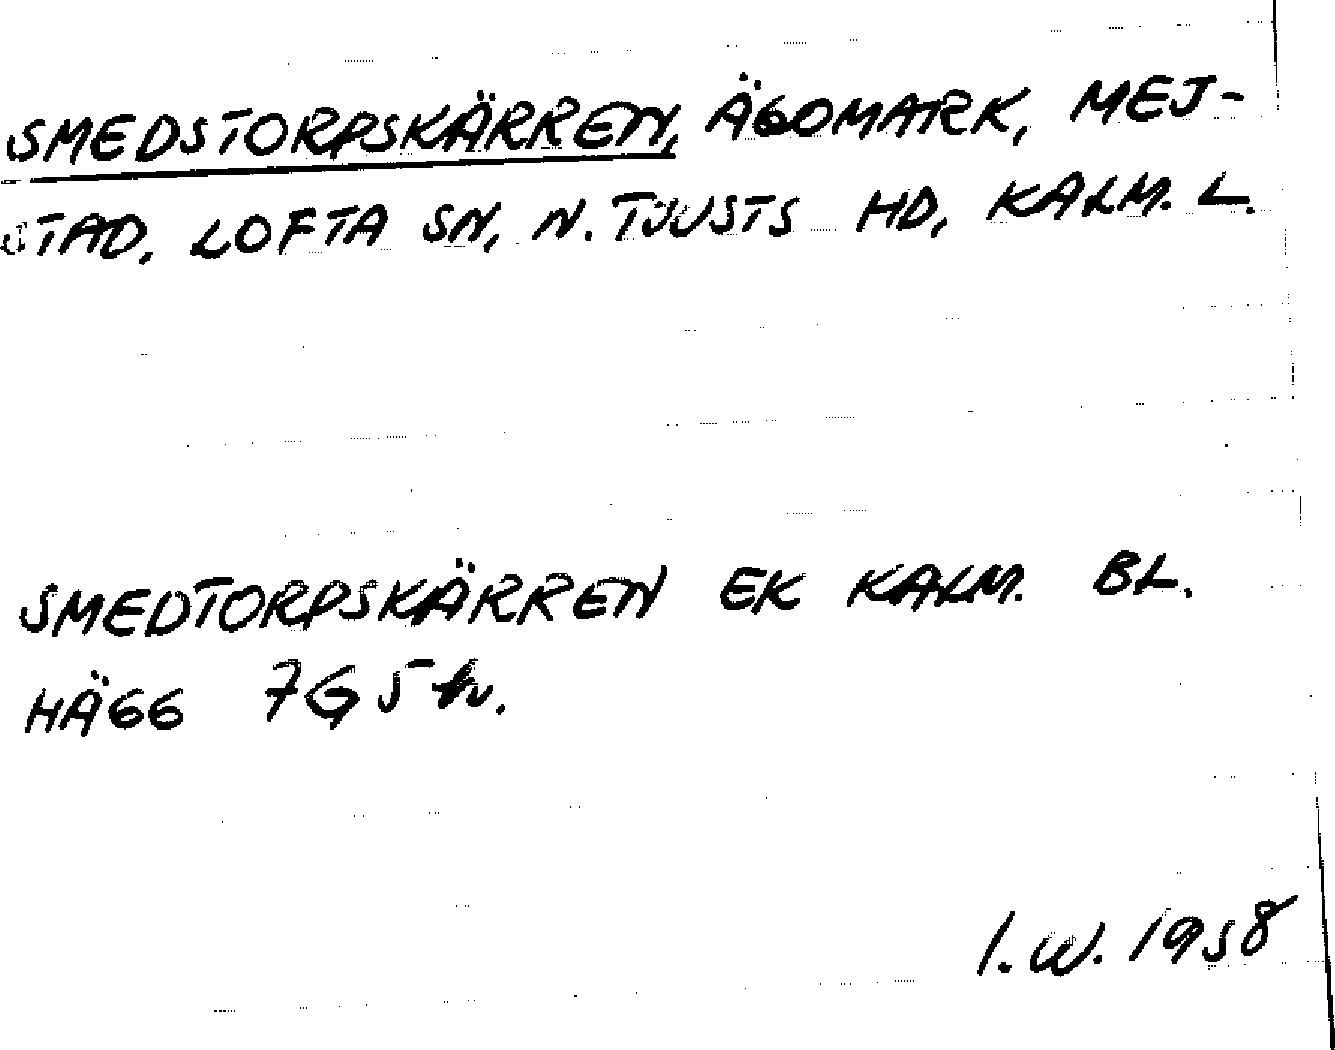 SMEDSTORPSKÄRREN, ÄGOMARK, MEJ-
STAD, LOFTA SN, N. TJUSTS HD, KALM. L.
SMEDTORPSKÄRREN EK KALM. BL.
HÄGG 7G5
I.W. 1958